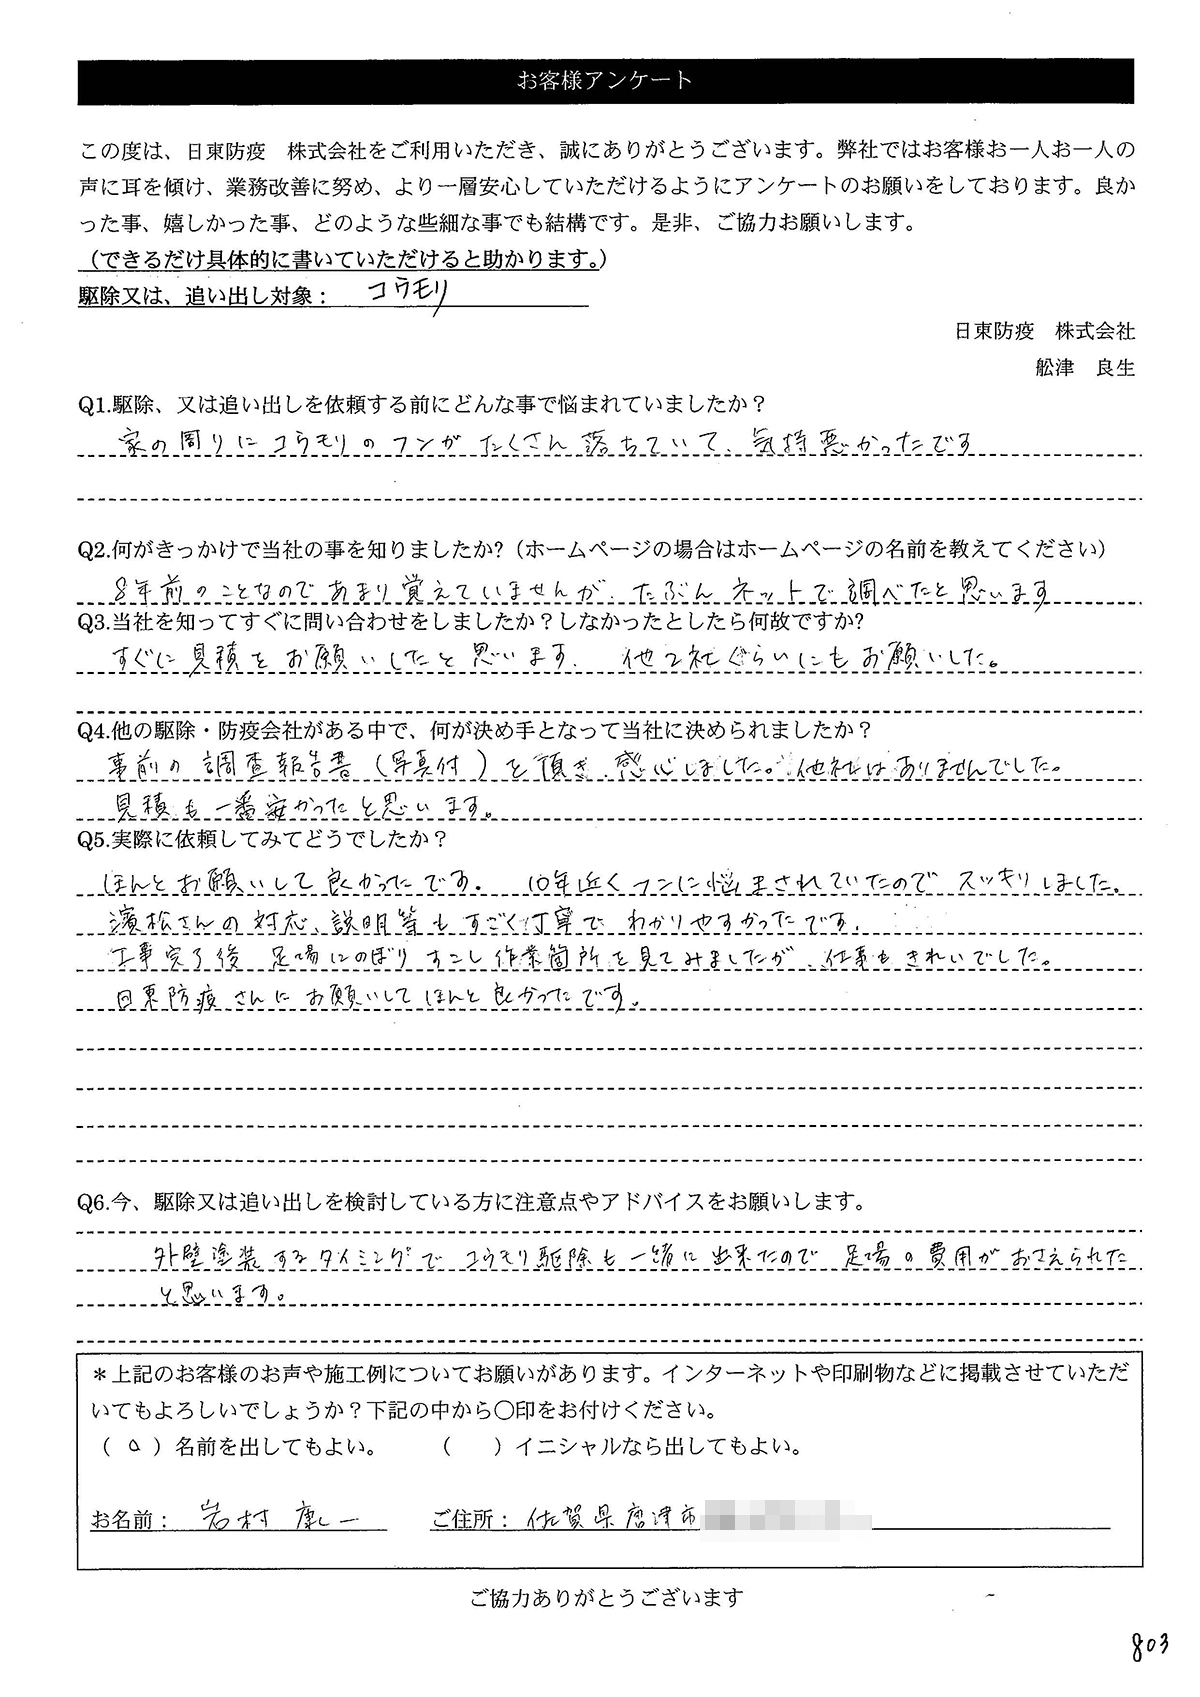 お客様アンケート
この度は、日東防疫　株式会社をご利用いただき、誠にありがとうございます。弊社ではお客様お一人お一人の
声に耳を傾け、業務改善に努め、より一層安心していただけるようにアンケートのお願いをしております。良か
った事、嬉しかった事、どのような些細な事でも結構です。是非、ご協力お願いします。
（できるだけ具体的に書いていただけると助かります。）
駆除又は、追い出し対象：　コウモリ
日東防疫　株式会社
舩津　良生
Q1.駆除、又は追い出しを依頼する前にどんな事で悩まれていましたか？
家の周りにコウモリのフンがたくさん落ちていて、気持悪かったです
Q2.何がきっかけで当社の事を知りましたか?（ホームページの場合はホームページの名前を教えてください）
8年前のことなのであまり覚えていませんが、たぶんネットで調べたと思います
Q3.当社を知ってすぐに問い合わせをしましたか？しなかったとしたら何故ですか?
すぐに見積をお願いしたと思います。　他2社ぐらいにもお願いした。
Q4.他の駆除・防疫会社がある中で、何が決め手となって当社に決められましたか？
事前の調査報告書（写真付）を頂き、感心しました。他社はありませんでした。
見積も一番安かったと思います。
Q5.実際に依頼してみてどうでしたか？
ほんとお願いして良かったです。　10年近くフンに悩まされていたのでスッキリしました。
濱松さんの対応、説明等もすごく丁寧でわかりやすかったです。
工事完了後　足場にのぼりすこし作業箇所を見てみましたが、仕事もきれいでした。
日東防疫さんにお願いしてほんと良かったです。
Q6.今、駆除又は追い出しを検討している方に注意点やアドバイスをお願いします。
外壁塗装するタイミングでコウモリ駆除も一緒に出来たので足場の費用がおさえられた
と思います。
＊上記のお客様のお声や施工例についてお願いがあります。インターネットや印刷物などに掲載させていただ
いてもよろしいでしょうか？下記の中から〇印をお付けください。
（ ○ ）名前を出してもよい。　　（　　）イニシャルなら出してもよい。
お名前：　岩村　康一　　ご住所：　佐賀県唐津市
ご協力ありがとうございます
803